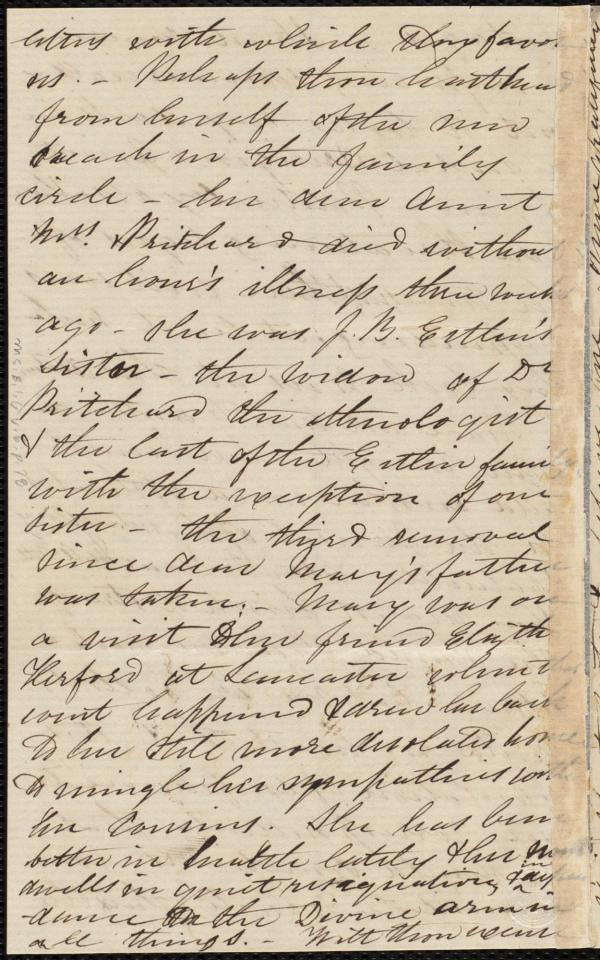 letters with which they favor
us. - Perhaps thou hast hea
from herself of the new
breach in the family
circle - her dear Aunt
Mrs. Pritchard died without
an hour's illness three weeks
ago - she was J. B. Estlin's
sister - the widow of Dr
Pritchard the ethnologist
& the last of the Estlin family
with the exception of one
sister - the third removal
since dear Mary's father
was taken. - Mary was on
a visit to her friend Elizth
Herford at Lancaster when the
event happened & drew her back
to her still more desolated home
to mingle her sympathies with
her cousins. She has been
better in health lately & her
dwells in quiet resignation, &
-dance on the Divine arm in
all things. - Wilt thou excuse